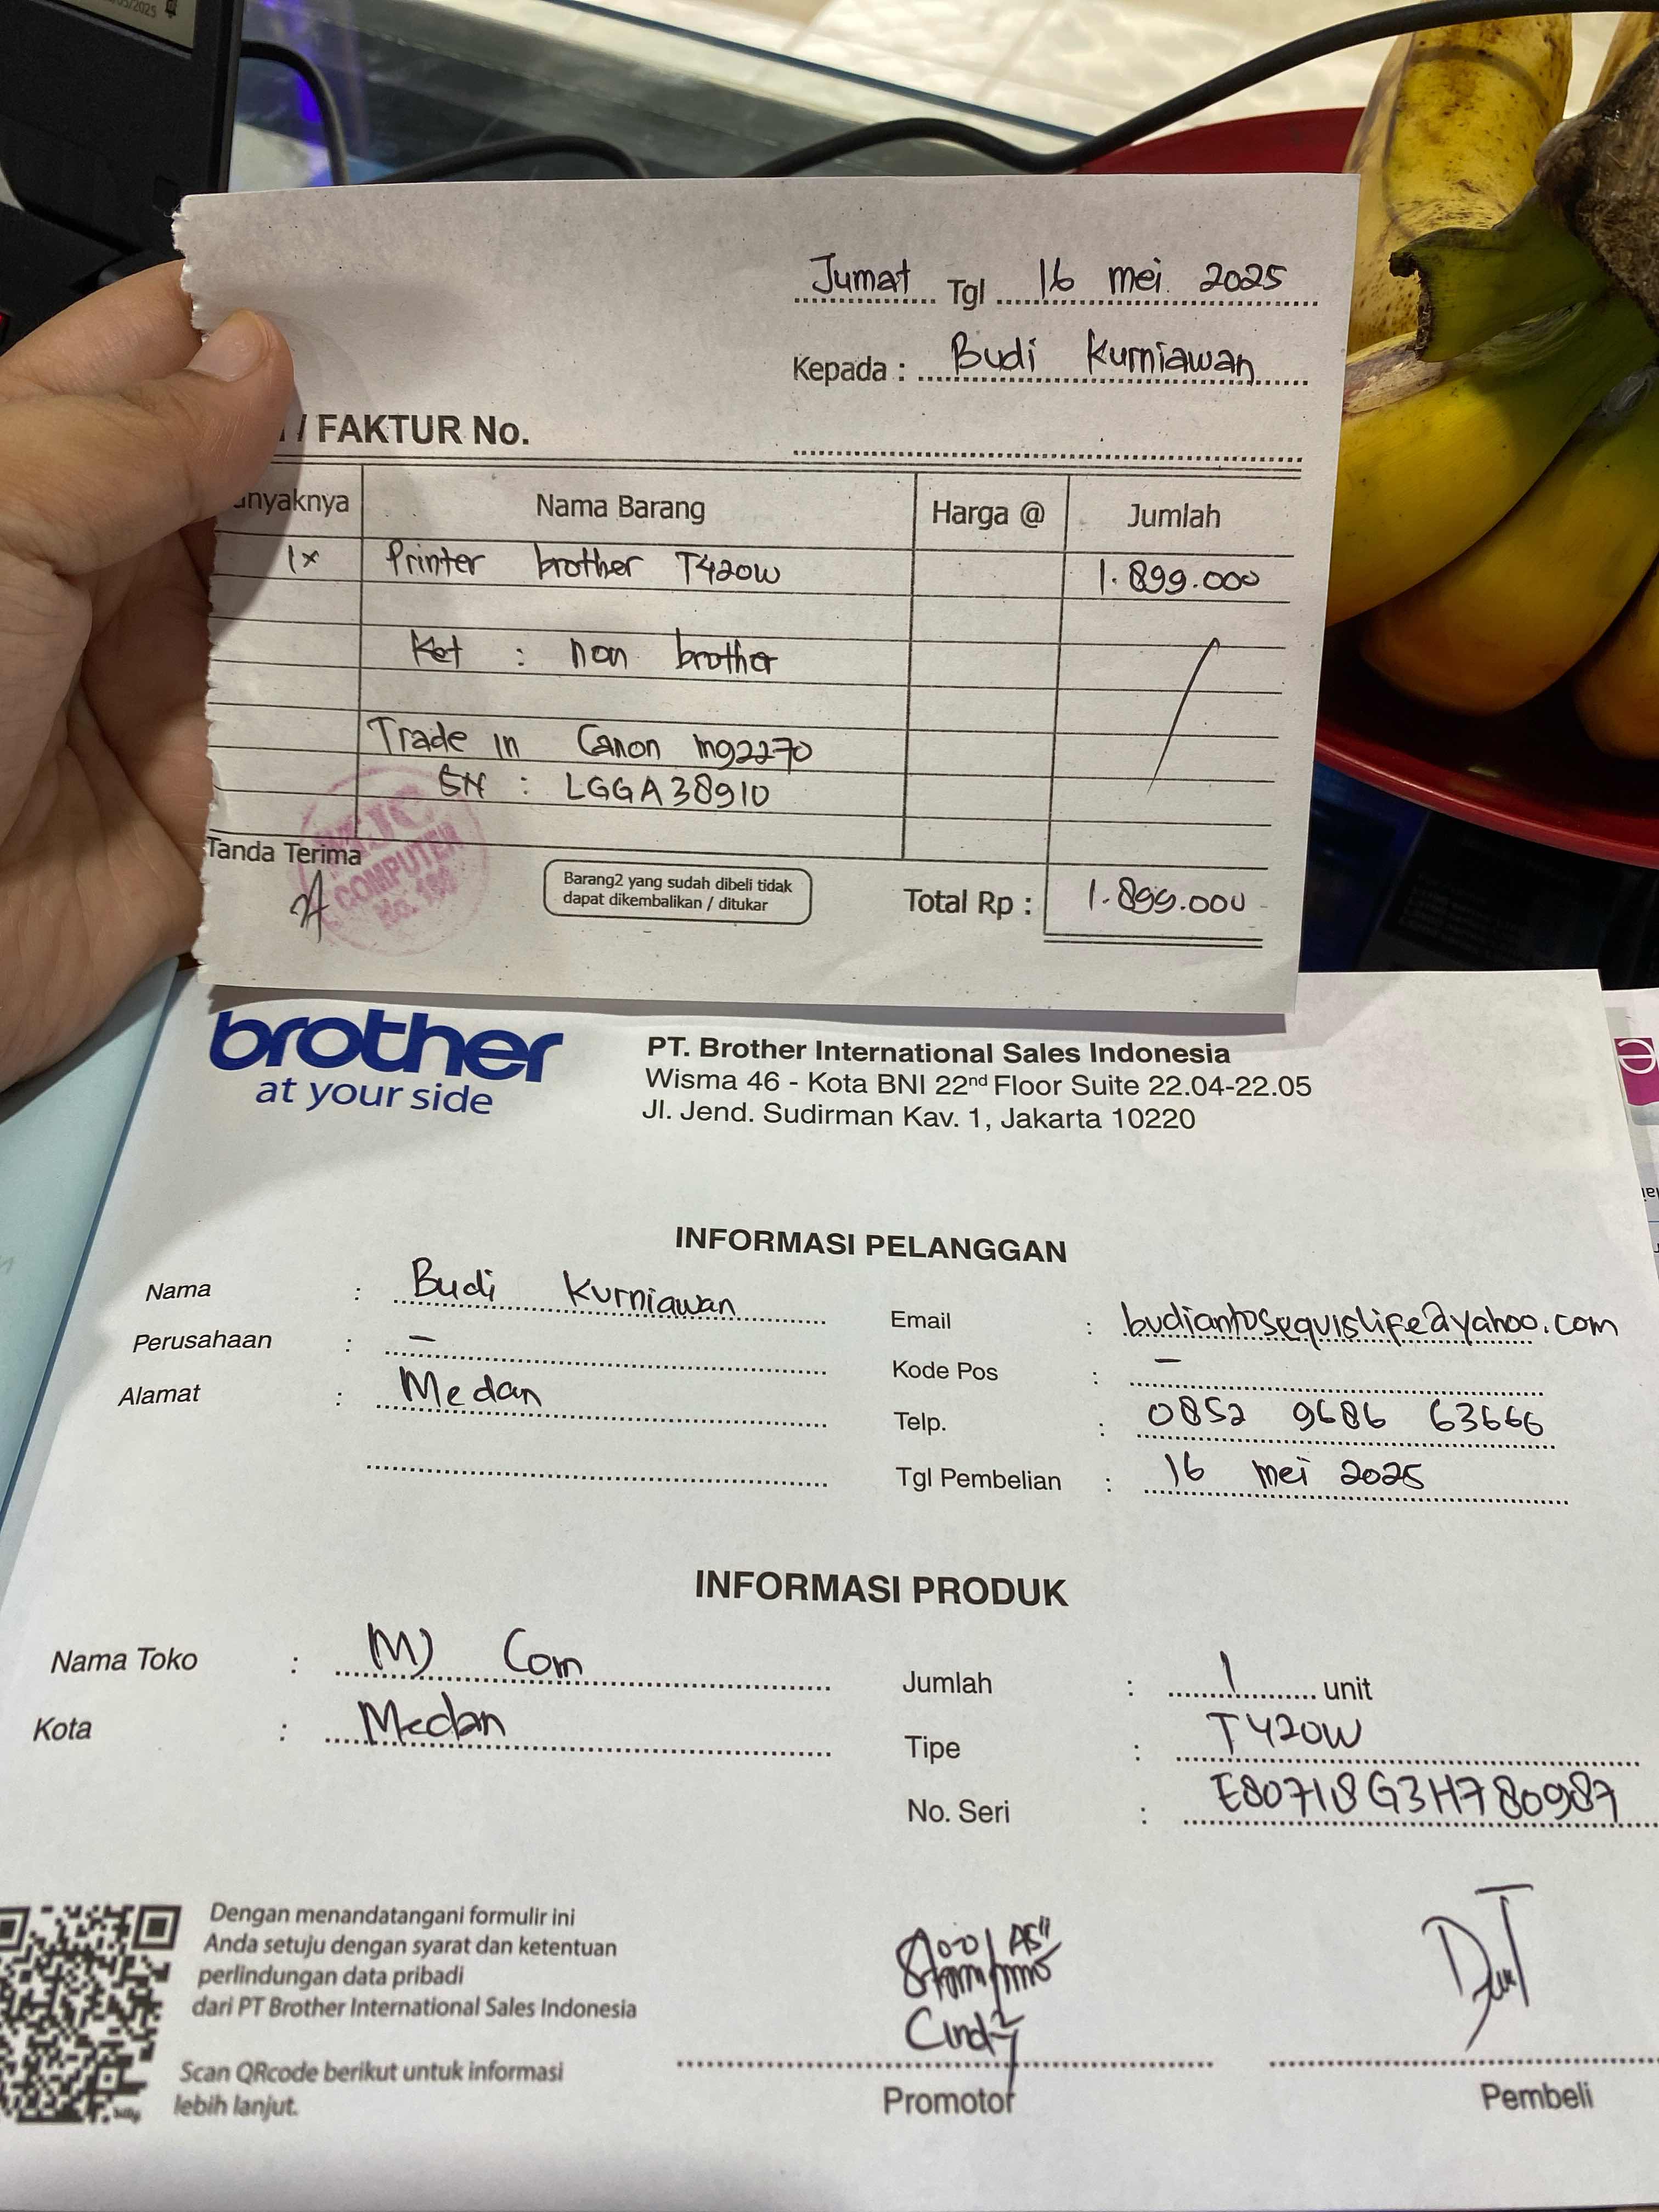 Jumat Tgl 16 mei 2025
Kepada : Budi Kurniawan
/ FAKTUR No.
anyaknya Nama Barang Harga @ Jumlah
1x Printer brother T420W 1.899.000
Ket : non brother
Trade in Canon mg2270
SN : LGGA38910
Tanda Terima
COMPUTER
No.
Barang2 yang sudah dibeli tidak
dapat dikembalikan / ditukar
Total Rp : 1.899.000
brother
at your side
PT. Brother International Sales Indonesia
Wisma 46 - Kota BNI 22nd Floor Suite 22.04-22.05
Jl. Jend. Sudirman Kav. 1, Jakarta 10220
INFORMASI PELANGGAN
Nama : Budi Kurniawan
Perusahaan : –
Alamat : Medan
Email : budiantosequislife@yahoo.com
Kode Pos : –
Telp. : 0852 9686 63666
Tgl Pembelian : 16 mei 2025
INFORMASI PRODUK
Nama Toko : MJ Com
Kota : Medan
Jumlah : 1 unit
Tipe : T420W
No. Seri : E80718G3H780987
Dengan menandatangani formulir ini
Anda setuju dengan syarat dan ketentuan
perlindungan data pribadi
dari PT Brother International Sales Indonesia
Scan QRcode berikut untuk informasi
lebih lanjut.
Cindy
Promotor
Pembeli